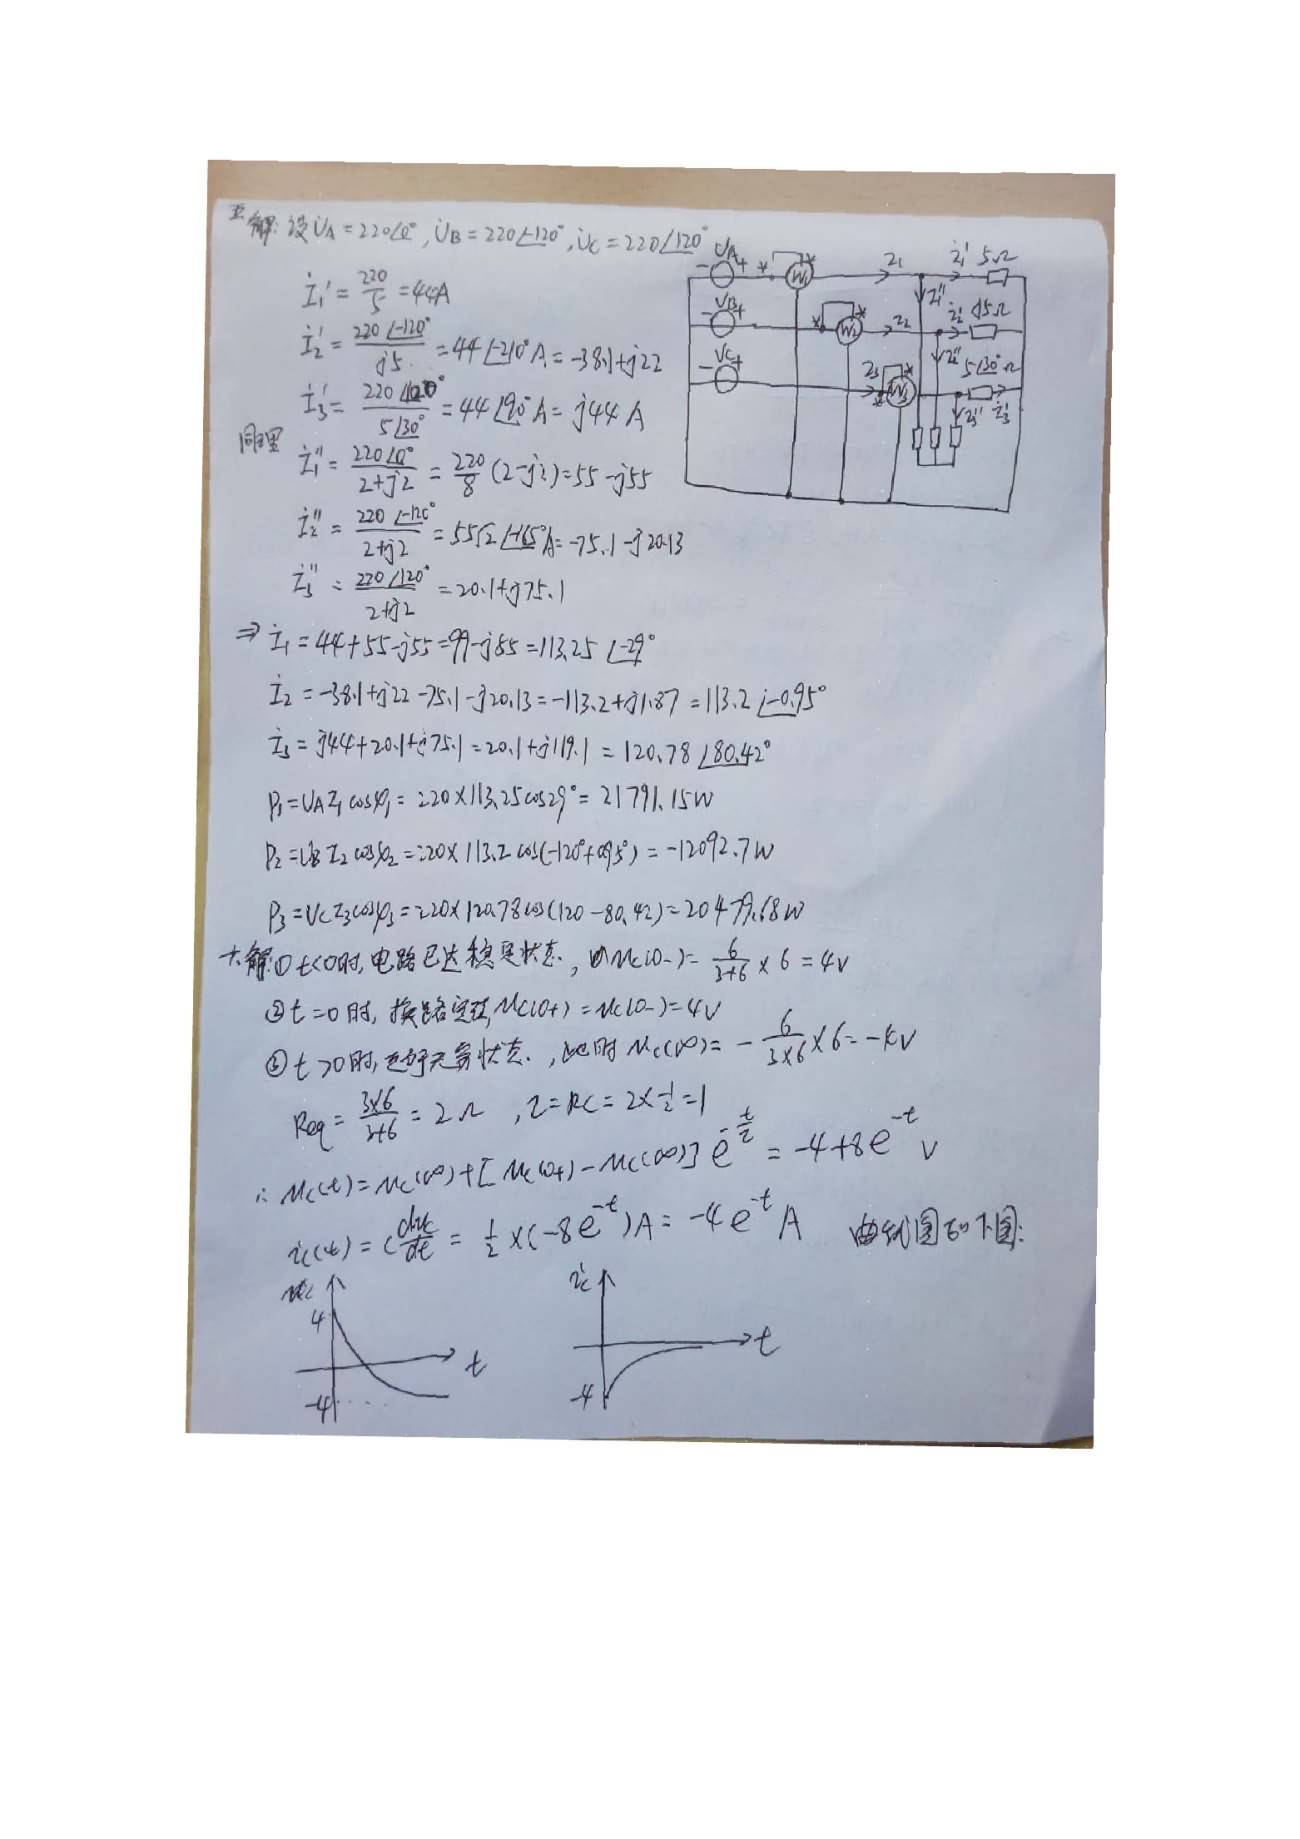 五.解: 设U̇A=220∠0°, U̇B=220∠-120°, U̇C=220∠120°
İ1'=220/5=44A
İ2'=220∠-120°/j5=44∠-210°A=-38.1+j22
İ3'=220∠120°/5∠30°=44∠90°A=j44A
同理 İ1''=220∠0°/2+j2=220/8(2-j2)=55-j55
İ2''=220∠-120°/2+j2=55√2∠-165°A=-75.1-j20.13
İ3''=220∠120°/2+j2=20.1+j75.1
⇒ İ1=44+55-j55=99-j55=113.25∠-29°
İ2=-38.1+j22-75.1-j20.13=-113.2+j1.87=113.2∠-0.95°
İ3=j44+20.1+j75.1=20.1+j119.1=120.78∠80.42°
P1=UAI1cosφ1=220×113.25cos29°=21791.15W
P2=UBI2cosφ2=220×113.2cos(-120°+0.95°)=-12092.7W
P3=UCI3cosφ3=220×120.78cos(120-80.42)=20479.68W
六.解:① t<0时,电路已达稳定状态, uc(0-)=6/3+6×6=4V
② t=0时, 换路定理, uc(0+)=uc(0-)=4V
③ t>0时, 状态, 此时uc(∞)=-6/3×6×6=-4V
Req=3×6/3+6=2Ω, τ=RC=2×1/2=1
∴ uc(t)=uc(∞)+[uc(0+)-uc(∞)]e^-t/τ=-4+8e^-t V
ic(t)=C duc/dt=1/2×(-8e^-t)A=-4e^-t A 曲线图如下图:
UA
-
+
*
*
W1
I1
İ1'
5Ω
I1''
UB
-
+
*
*
W2
I2
İ2'
j5Ω
I2''
UC
-
+
I3
*
*
W3
5∠30°Ω
I3''
İ3'
uc
4
-4
t
ic
-4
t